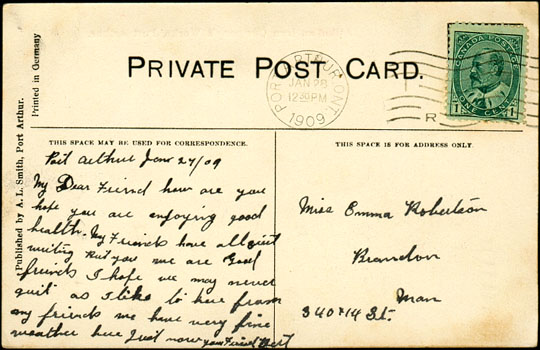 PRIVATE POST CARD.
CANADA POSTAGE
1 ONE CENT 1
PORT ARTHUR, ONT.
JAN 28
12 30 PM
1909
R
Printed in Germany
Published by A. L. Smith, Port Arthur.
THIS SPACE MAY BE USED FOR CORRESPONDENCE.
Port Arthur Jan 27/09
My Dear Friend how are you
hope you are enjoying good
health. My Friends have all quit
writing But you we are Good
friends I hope we may never
quit as I like to hear from
my friends we have very fine
weather here Just now your Friend Bert
THIS SPACE IS FOR ADDRESS ONLY.
Miss Emma Robertson
Brandon
Man
340 14 St.